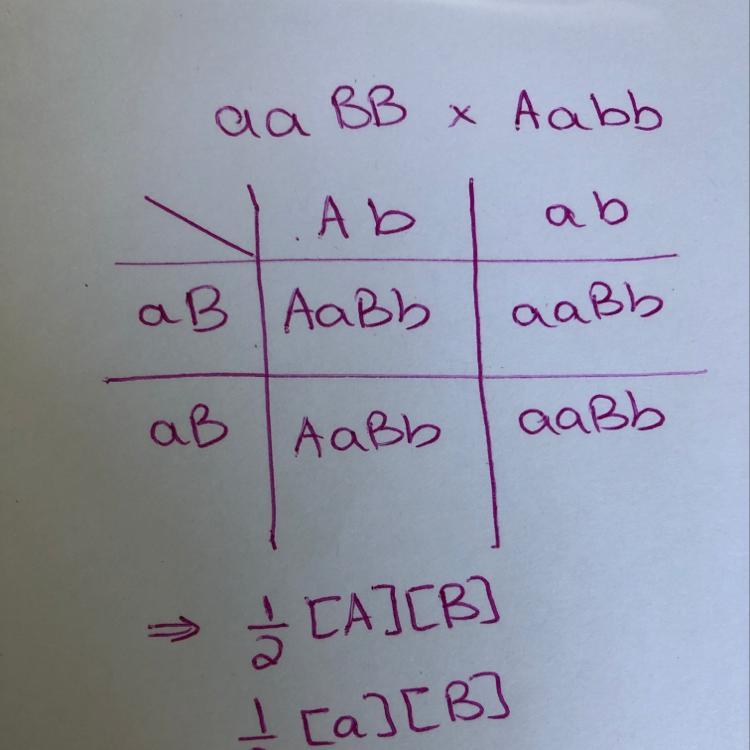 aaBB × Aabb
Ab ab
aB AaBb aaBb
aB AaBb aaBb
⇒ 1/2 [A][B]
[a][B]